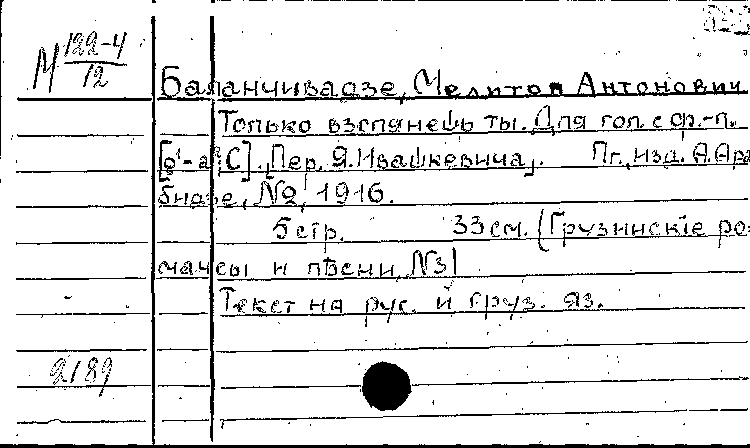 М 122-4/12
Баланчивадзе, Мелитон Антонович
Только взглянешь ты. Для гол. с ф.-п.
[d¹-a² C]. [Пер. Я. Ивашкевича]. Пг., изд. А. Ара-
бидзе, №2, 1916.
5 стр. 33 см. (Грузинскіе ро-
мансы и пѣсни, №3)
Текст на рус. и груз. яз.
2189